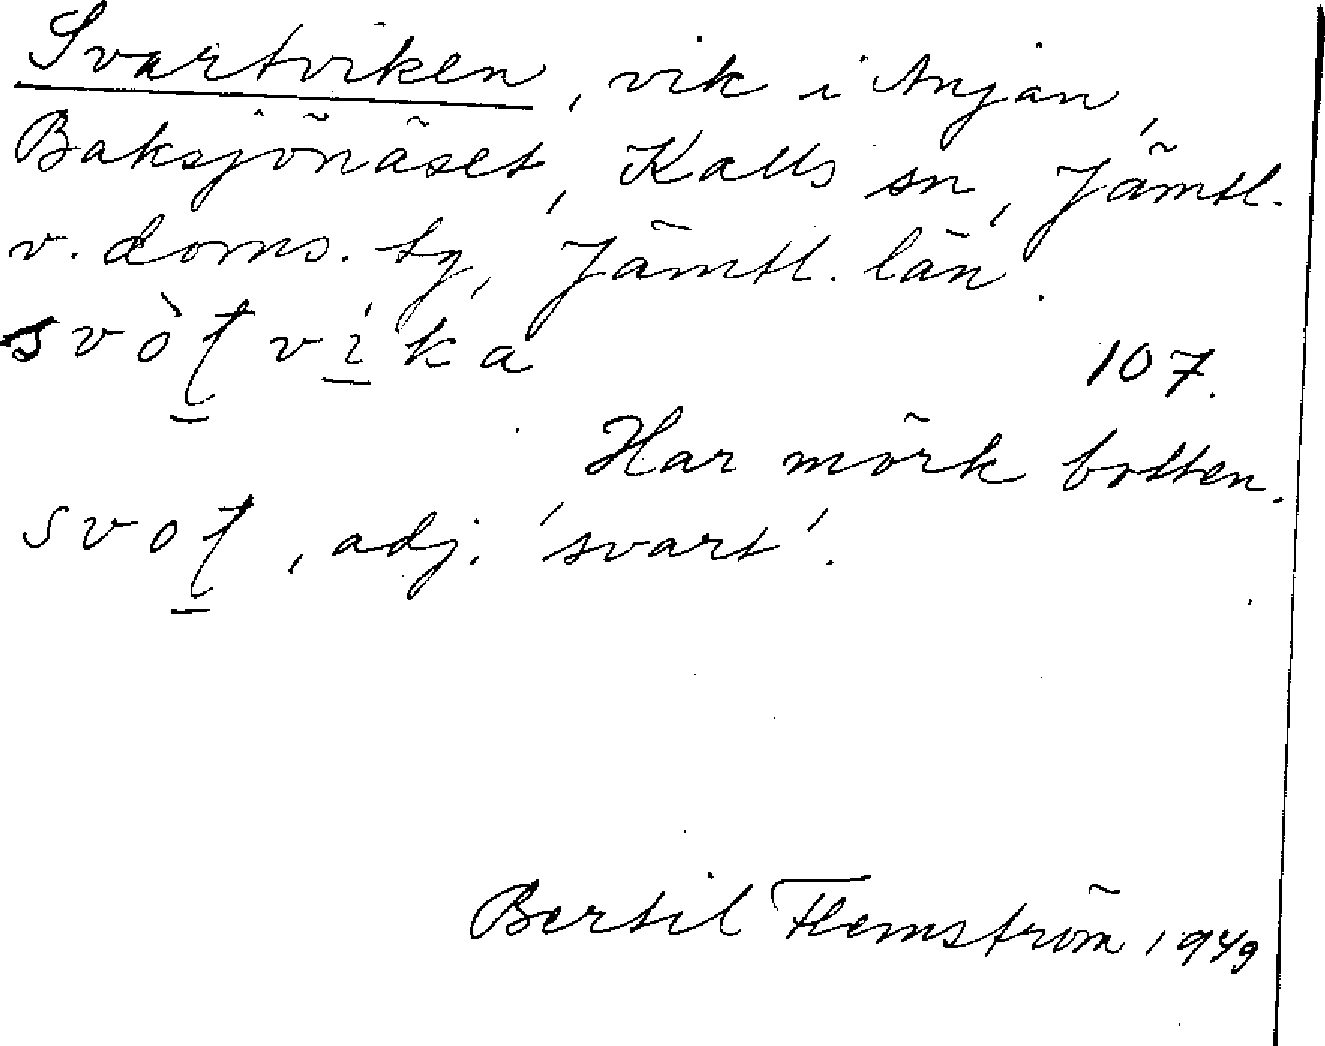 Svartviken, vik i Anjan,
Baksjönäset, Kalls sn, Jämtl.
v. doms. tg, Jämtl. län.
svòʈvíka 107.
Har mörk botten.
svoʈ, adj. 'svart'.
Bertil Flemström 1949